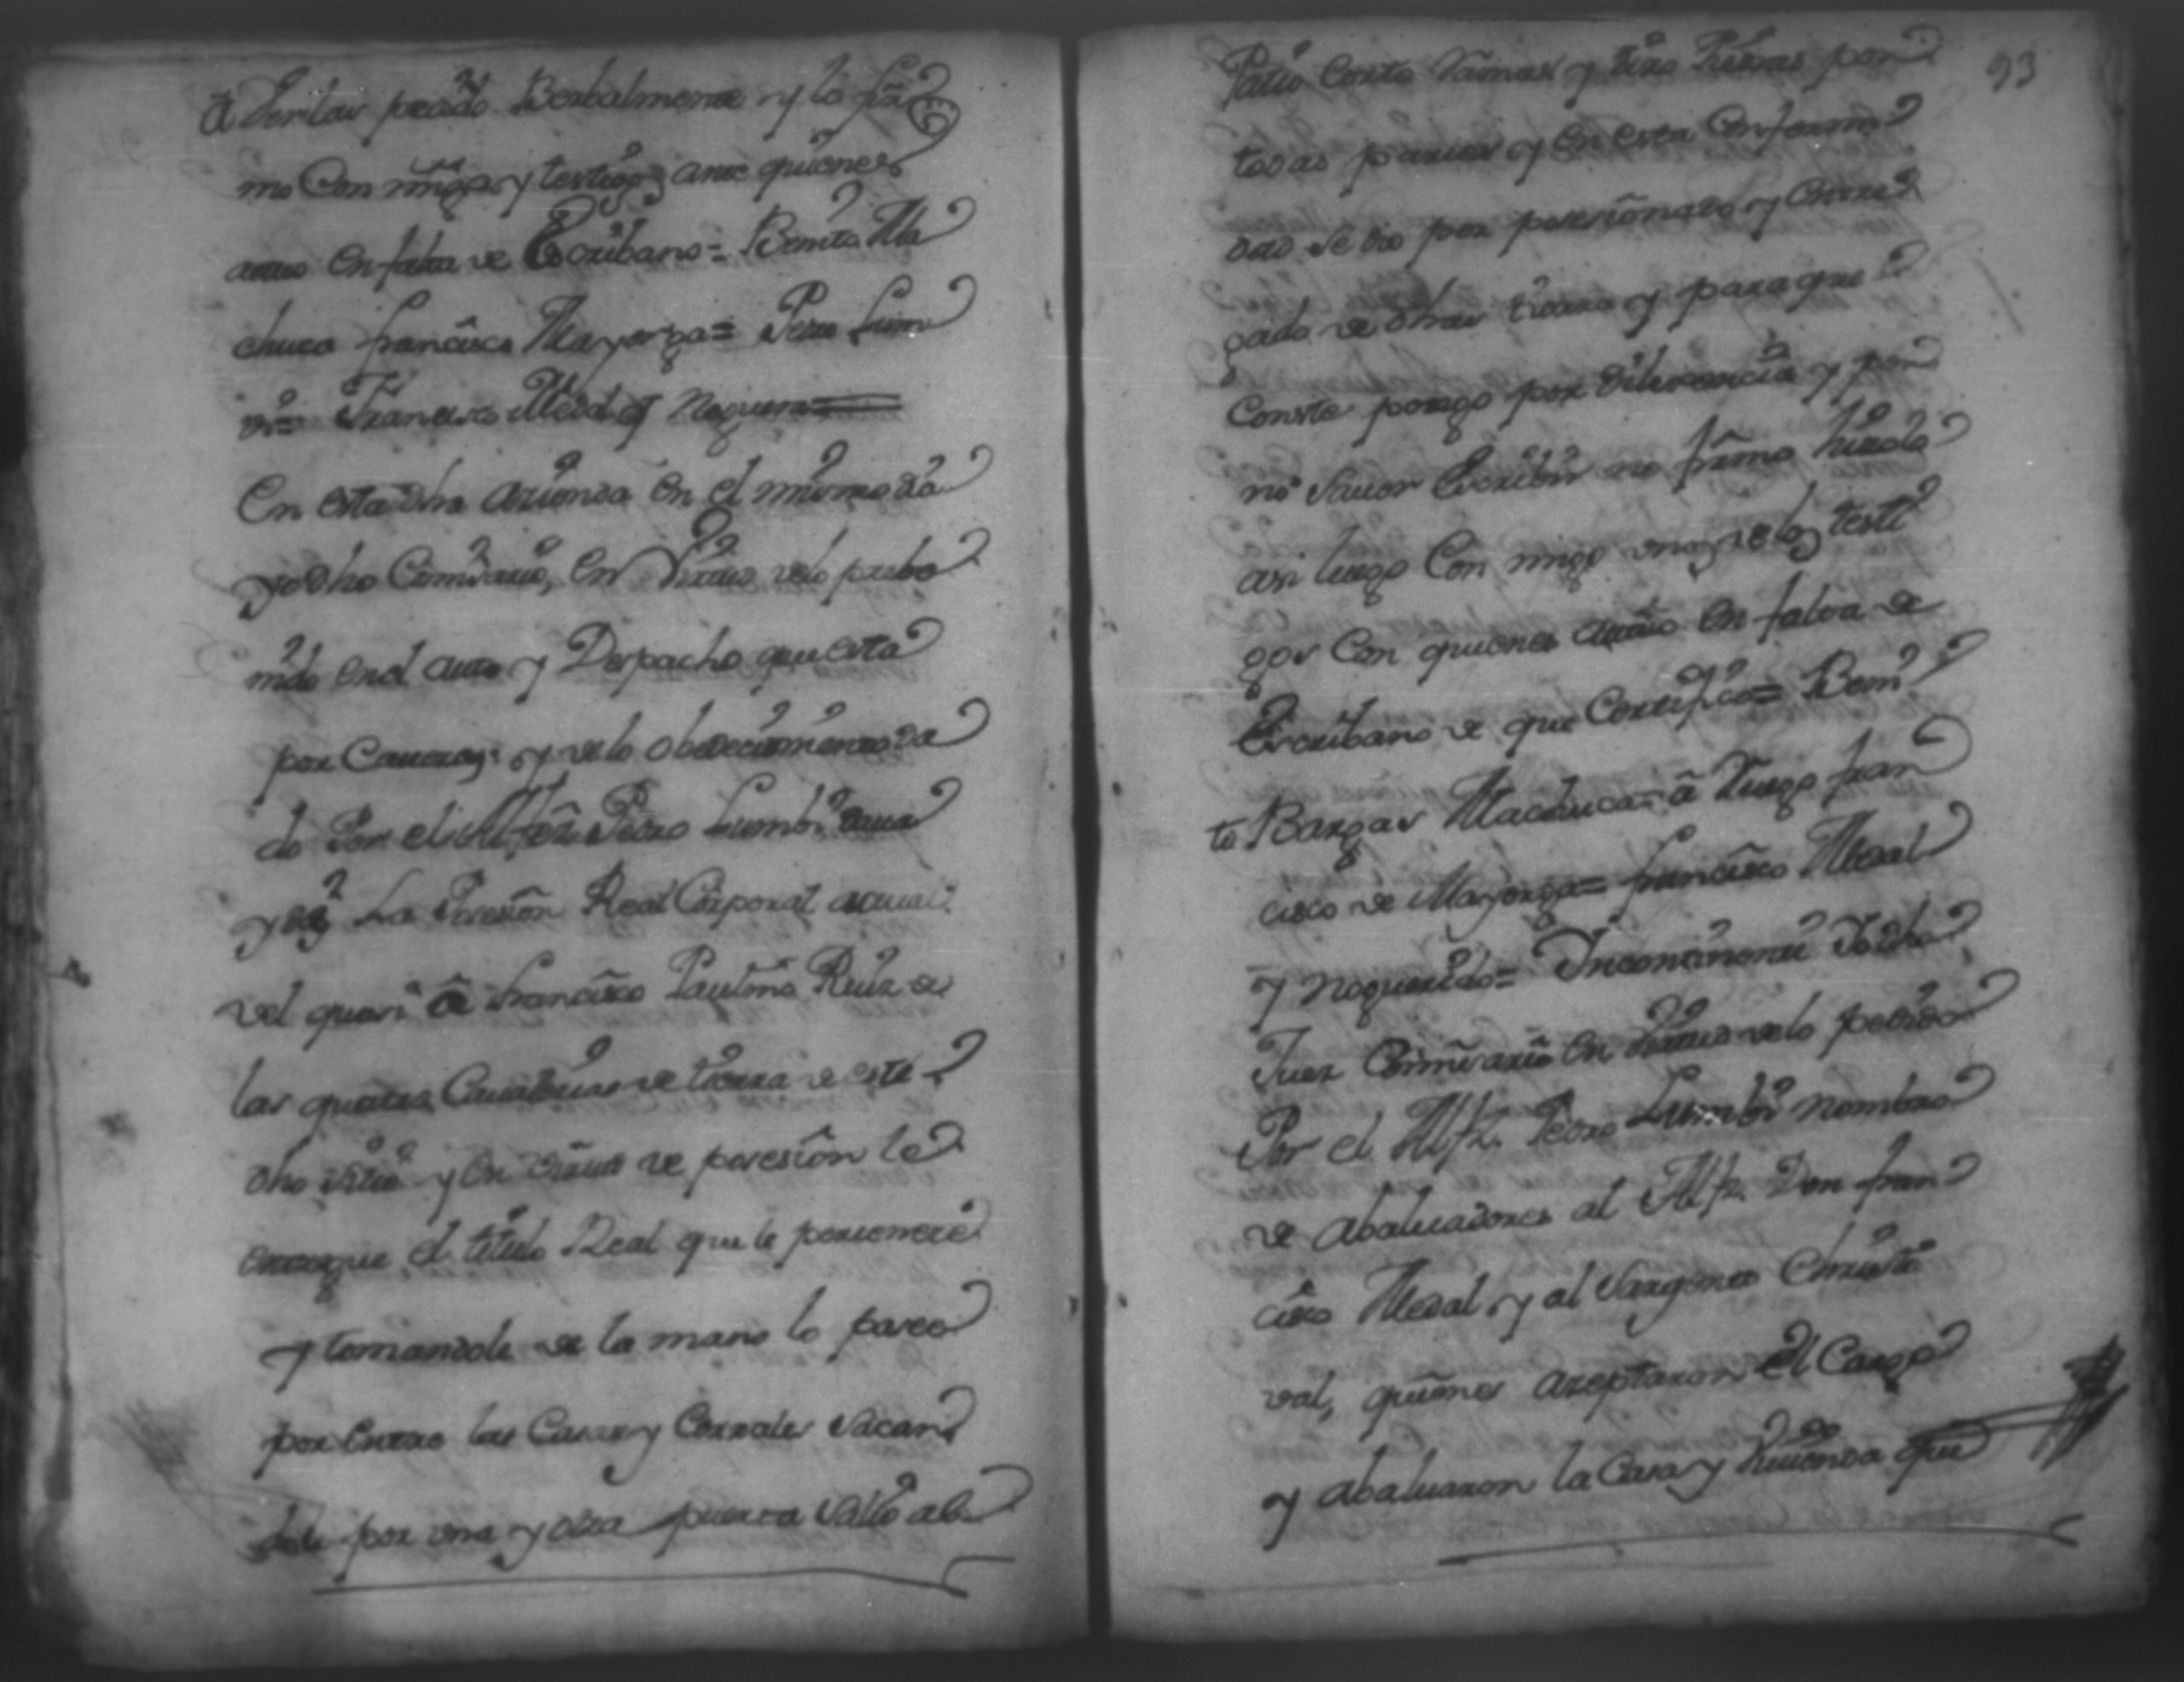 pedido Berbalmente y lo fir
mo Con migo y testigos ante quienes
actuo En falta de Escribano = Benito Ma
chuca francisco Mayorga = Pedro Lum
Francisco Medal y Noguera =
En esta dha azienda En el mismo dia
yo dho Comisario, En Virtud de lo probe
mdo en el auto y Despacho que esta
por Caueza y de lo obedecimiento da
do Por el Alferez Pedro Lumbi
y La Posesion Real Corporal actual
vel quasi a francisco Paulino Ruiz de
las quatro Cauallerias de tierra de este
dho sitio y En Virtud de posesion le
entregue el titulo Real que le pertenece
y tomandole de la mano lo paseo
por Entre las Casas y Corrales Sacan
dole por una y otra puerta Salio al
93
Patio Corto Ramas y tiro Piedras por
todas partes y En esta Conformi
dad se dio por posesionado y Entre
gado de dhas tierras y para que
Conste pongo por diligencia y por
no Sauer Escribir no firmo hizolo
a su luego Con migo uno de los testi
gos Con quienes actuo En falta de
Escribano de que Certifico = Beni
to Bargas Machuca = a Ruego fran
cisco de Mayorga = francisco Medal
y Noguera = Incontinenti Yo dho
Juez Comisario En Virtud de lo pedido
Por el Alfz. Pedro Lumbi nombro
de abaluadores al Alfz. Don fran
cisco Medal y al Sargento Christo
val, quienes azeptaron El Cargo
y abaluaron la Casa y que